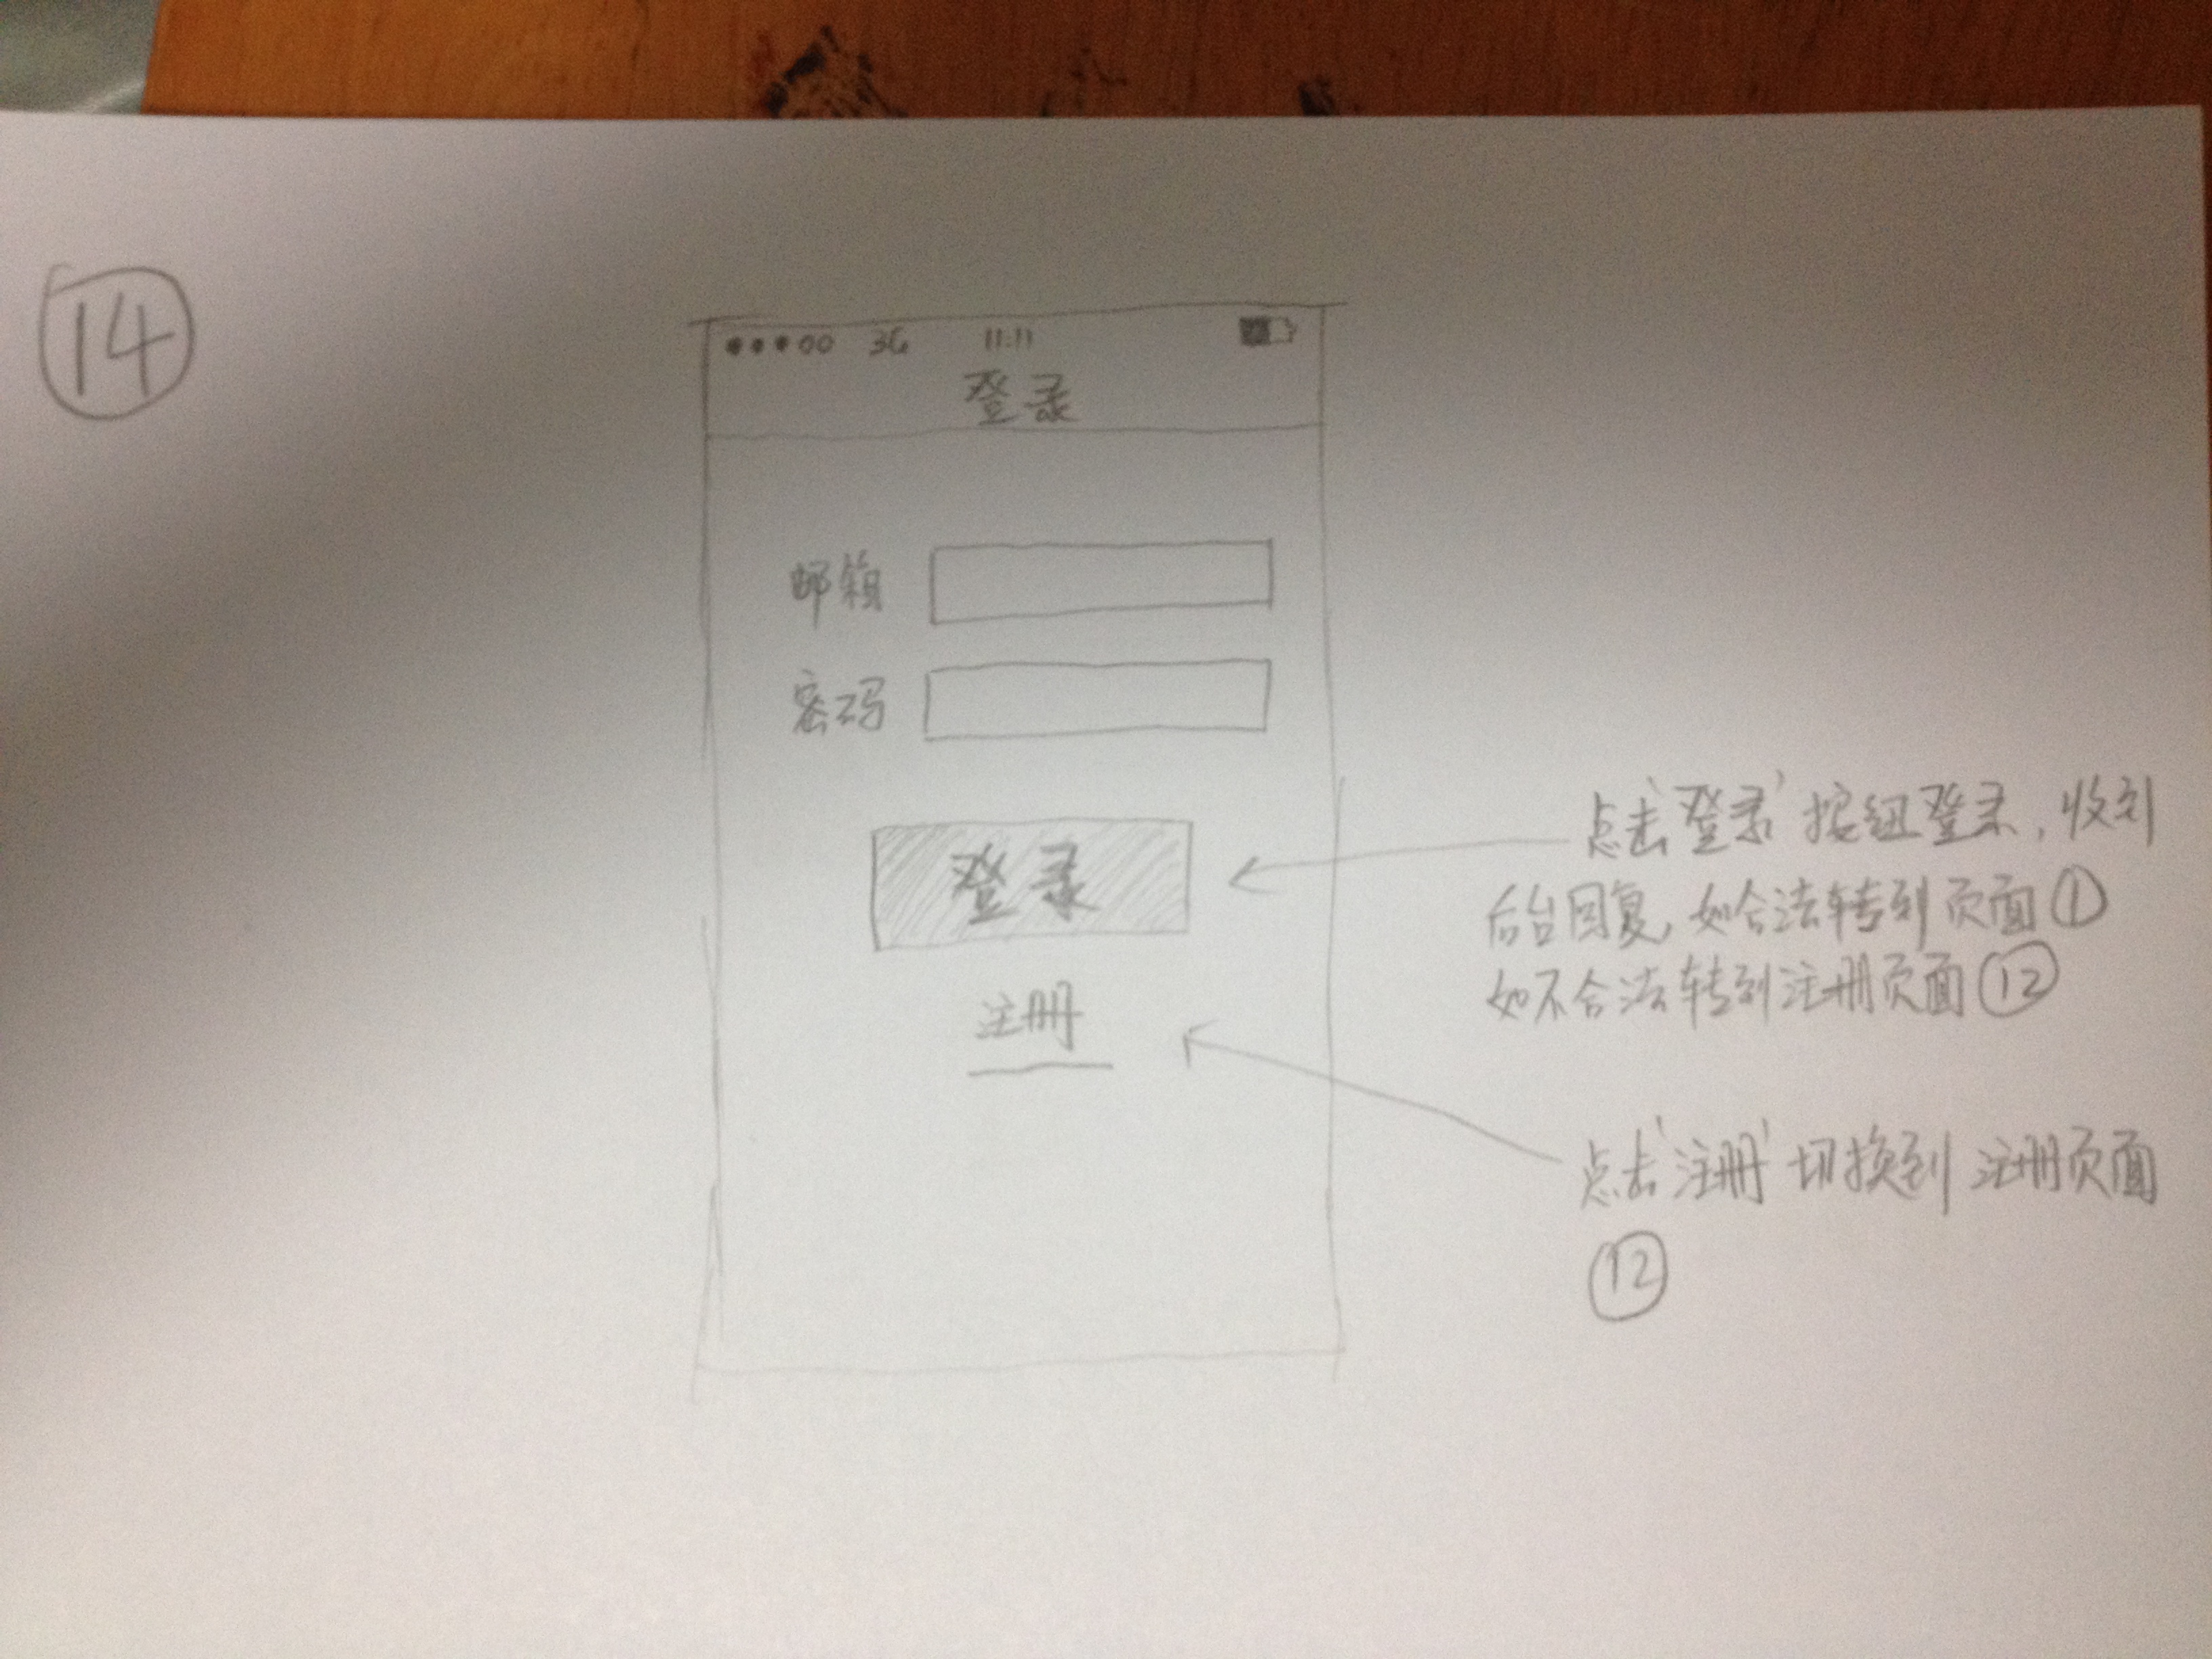 14
3G 11:11
登录
邮箱
密码
登录
注册
点击'登录'按钮登录,收到
后台回复,如合法转到页面①
如不合法转到注册页面⑫
点击'注册'切换到注册页面
⑫